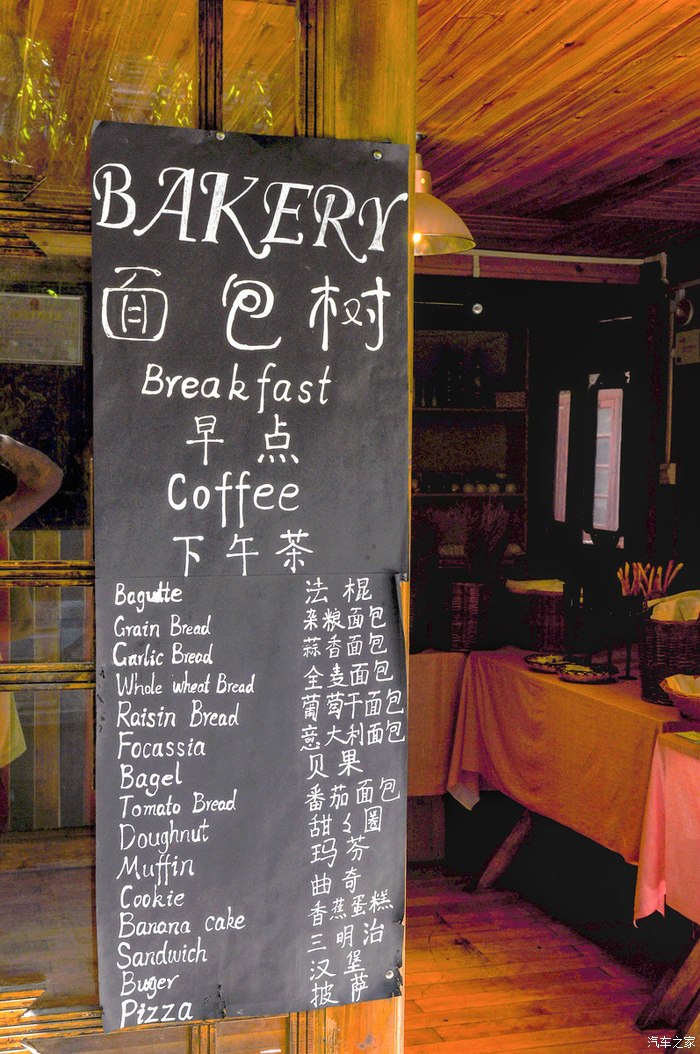 BAKERY
面包树
Breakfast
早点
Coffee
下午茶
Bagutte 法棍
Grain Bread 杂粮面包
Garlic Bread 蒜香面包
Whole wheat Bread 全麦面包
Raisin Bread 葡萄干面包
Focassia 意大利面包
Bagel 贝果
Tomato Bread 番茄面包
Doughnut 甜々圈
Muffin 玛芬
Cookie 曲奇
Banana cake 香蕉蛋糕
Sandwich 三明治
Buger 汉堡
Pizza 披萨
汽车之家